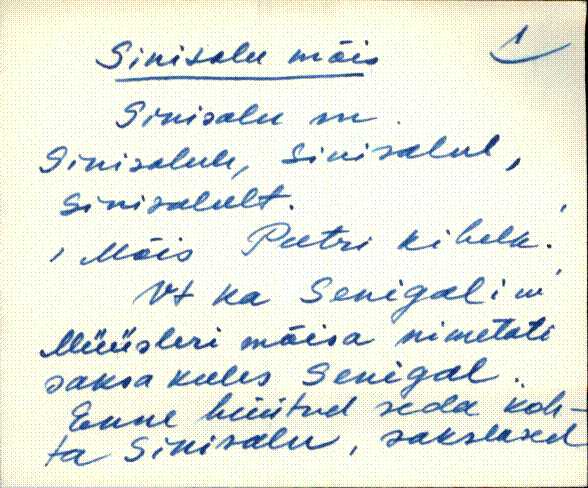 Sinisalu mõis 1
Sinisalu m.
Sinisalule, Sinisalul,
Sinisalult.
, Mõis Peetri kihelk.
Vt ka Senigali m
Müüsleri mõisa nimetati
saksa keeles Senigal.
Enne hüütud seda koh-
ta Sinisalu, sakslased